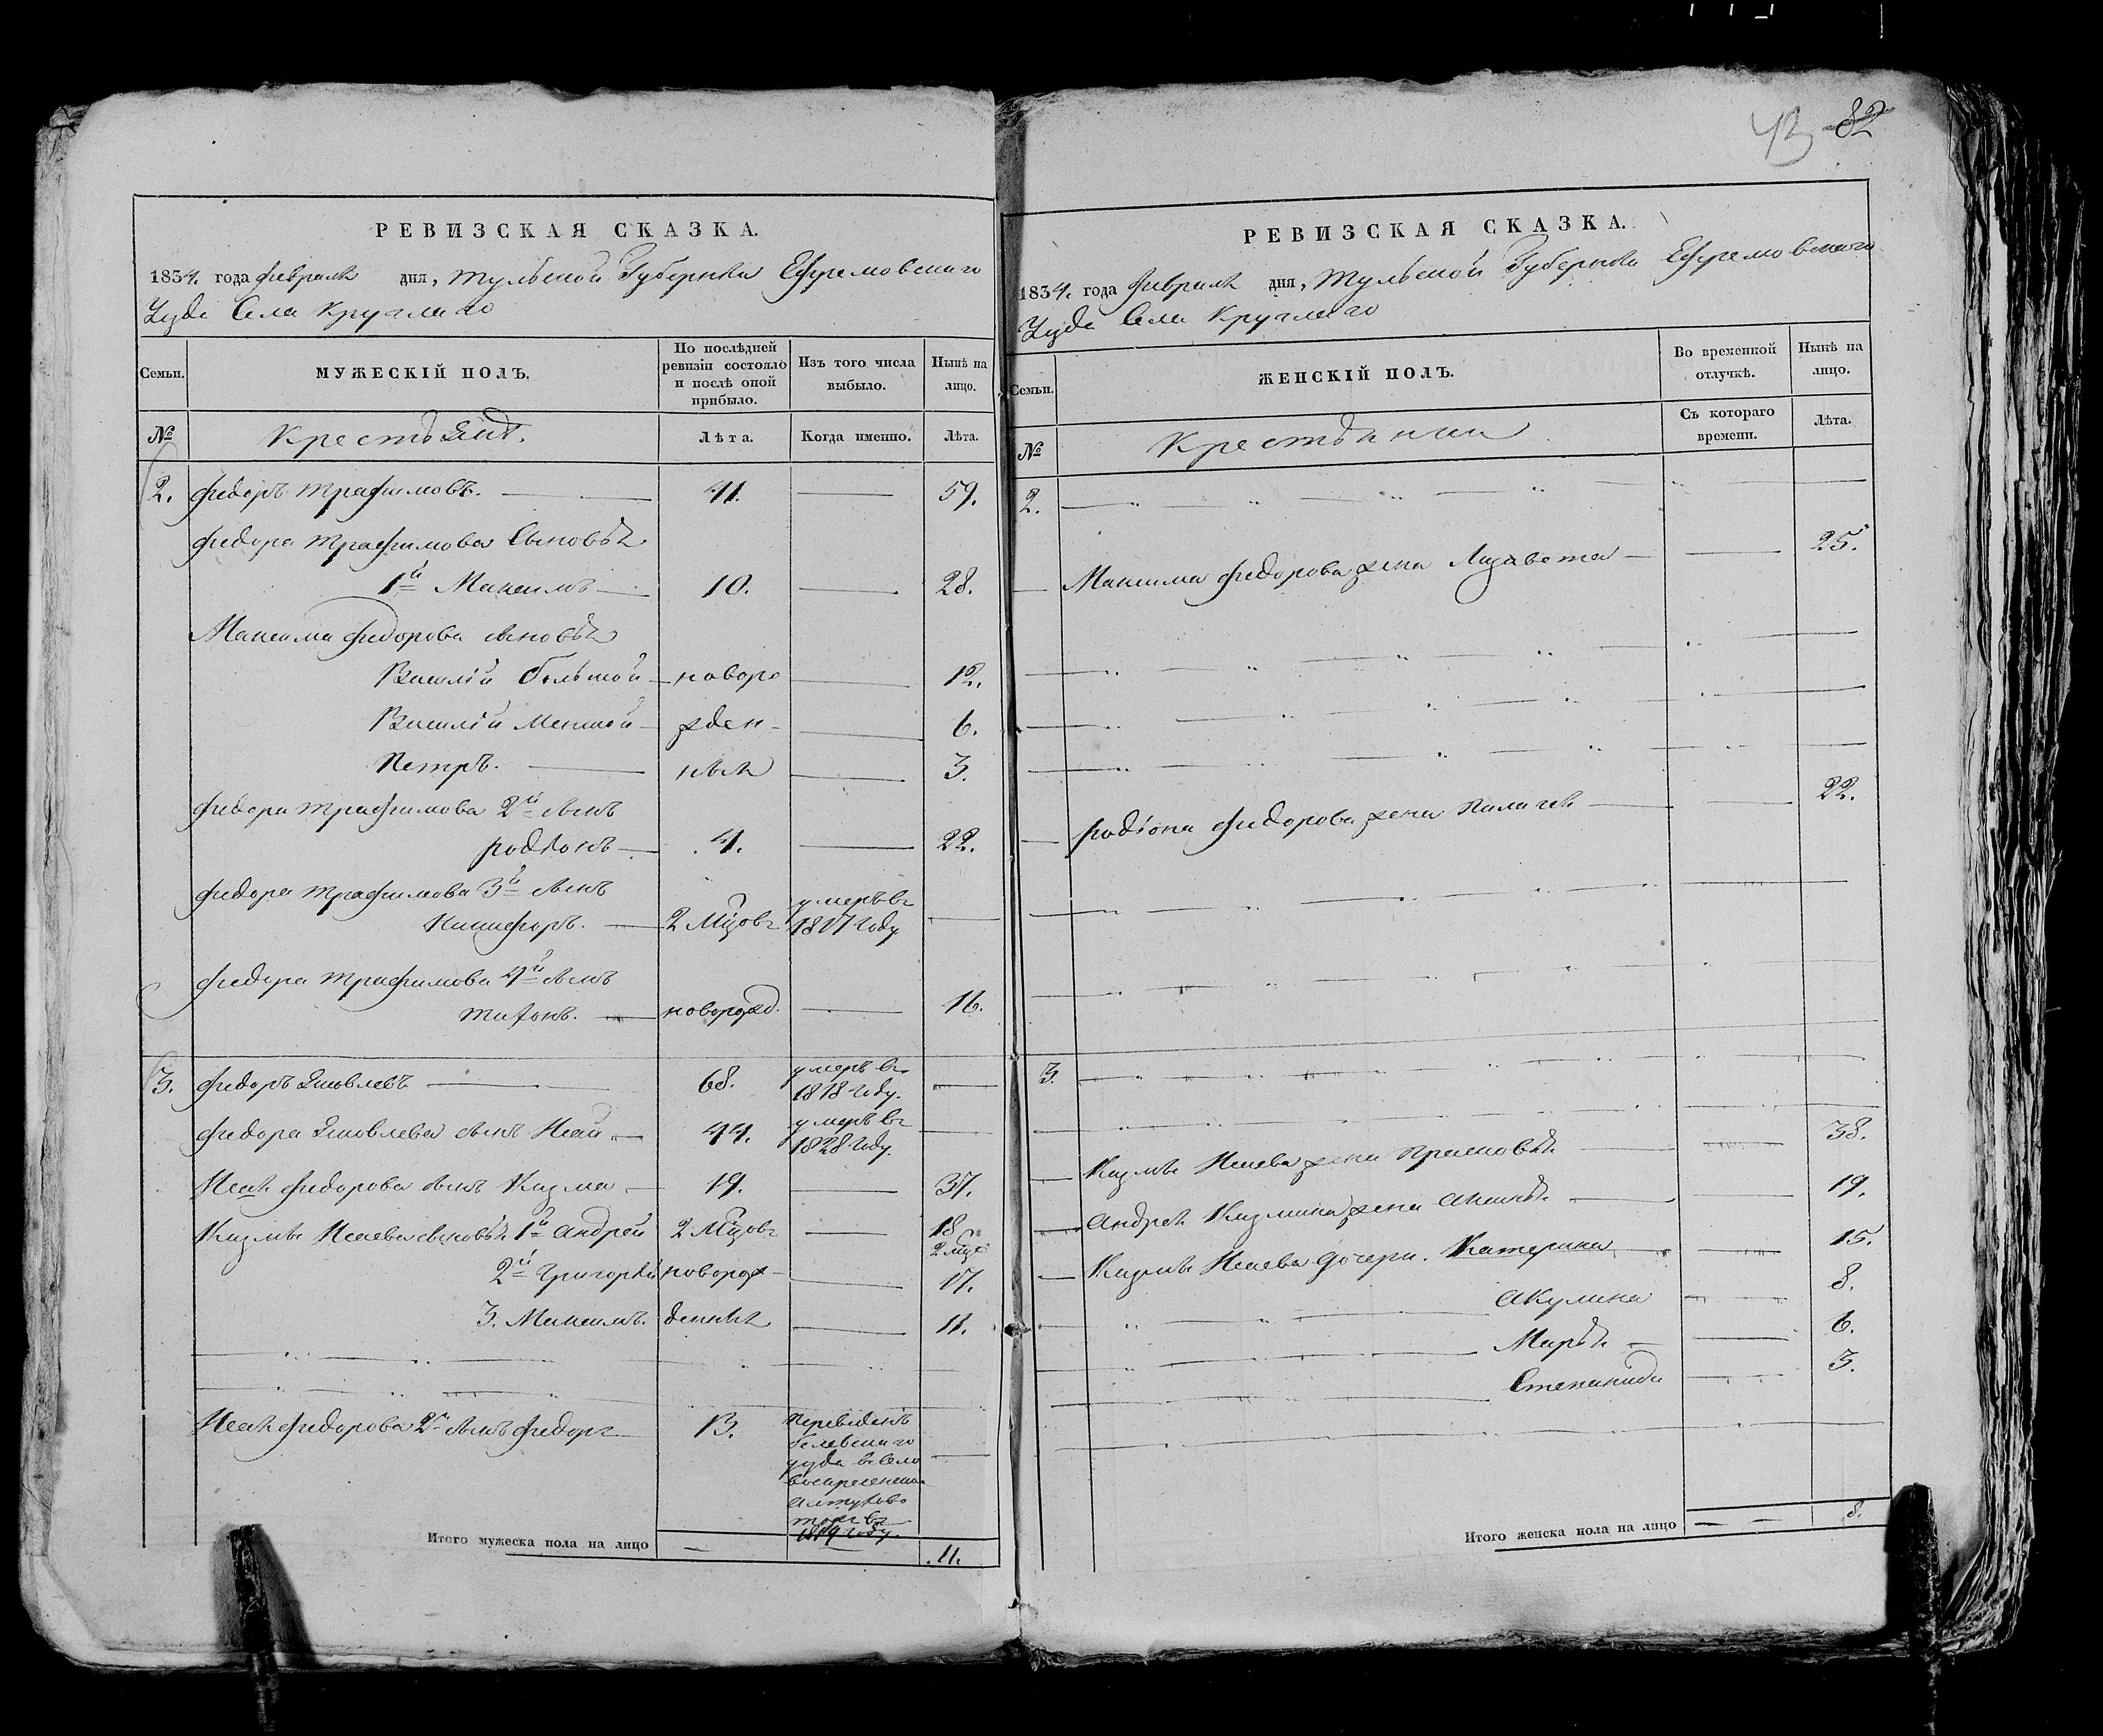 43 82
РЕВИЗСКАЯ СКАЗКА.
1834. года февраля дня, Тульской Губернии Ефремовскаго
Уезда Села Круглаго
Семьи.
МУЖЕСКІЙ ПОЛЪ.
По послѣдней ревизіи состояло и послѣ оной прибыло.
Изъ того числа выбыло.
Нынѣ на лицо.
№
Крестьянъ.
Лѣта.
Когда именно.
Лѣта.
2. Федоръ Трафимовъ. 41. 59.
Федора Трафимова Сыновья
1й Максимъ 10. 28.
Максима Федорова сыновья
Василій большой новоро 12.
Василій Меншой жден- 6.
Петръ. ныя 3.
Федора Трафимова 2й сынъ
родіонъ 4. 22.
Федора Трафимова 3й сынъ
Никифоръ. 2 Мцовъ умеръ въ 1817 году
Федора Трафимова 4й сынъ
Тихонъ. новорожд. 16.
3. Федоръ Яковлевъ 68. умеръ въ 1818 году.
Федора Яковлева сынъ Исай 44. умеръ въ 1828 году.
Исая Федорова сынъ Кузма 19. 37.
Кузмы Исаева сыновья 1й Андрей 2 Мцовъ 18 2 мцо
2й Григорій новорож- 17.
3. Максимъ. денныя 11.
Исая Федорова 2й сынъ Федоръ 13. переведенъ
белевскаго
уезда въ село
воскресенское
1819 году.
Итого мужеска пола на лицо .11.
РЕВИЗСКАЯ СКАЗКА.
1834. года февраля дня, Тульской Губернии Ефремовскаго
Уезда Села Круглаго
Семьи.
ЖЕНСКІЙ ПОЛЪ.
Во временной отлучкѣ.
Нынѣ на лицо.
№
Крестьянки
Съ котораго времени.
Лѣта.
2.
Максима Федорова жена Лизавета 25.
родіона Федорова жена Пилагея 22.
3.
Кузмы Исаева жена Прасковья 38.
Андрея Кузмина жена Аксинья 19.
Кузмы Исаева дочери. Катерина 15.
Акулина 8.
Марья 6.
Степанида 3.
Итого женска пола на лицо 8.